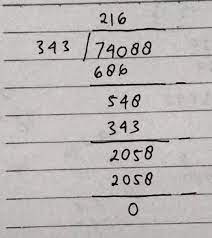 216
343 74088
686
548
343
2058
2058
0